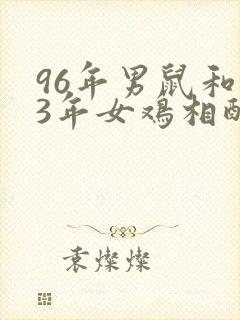 96年男鼠和
3年女鸡相配
袁燦燦